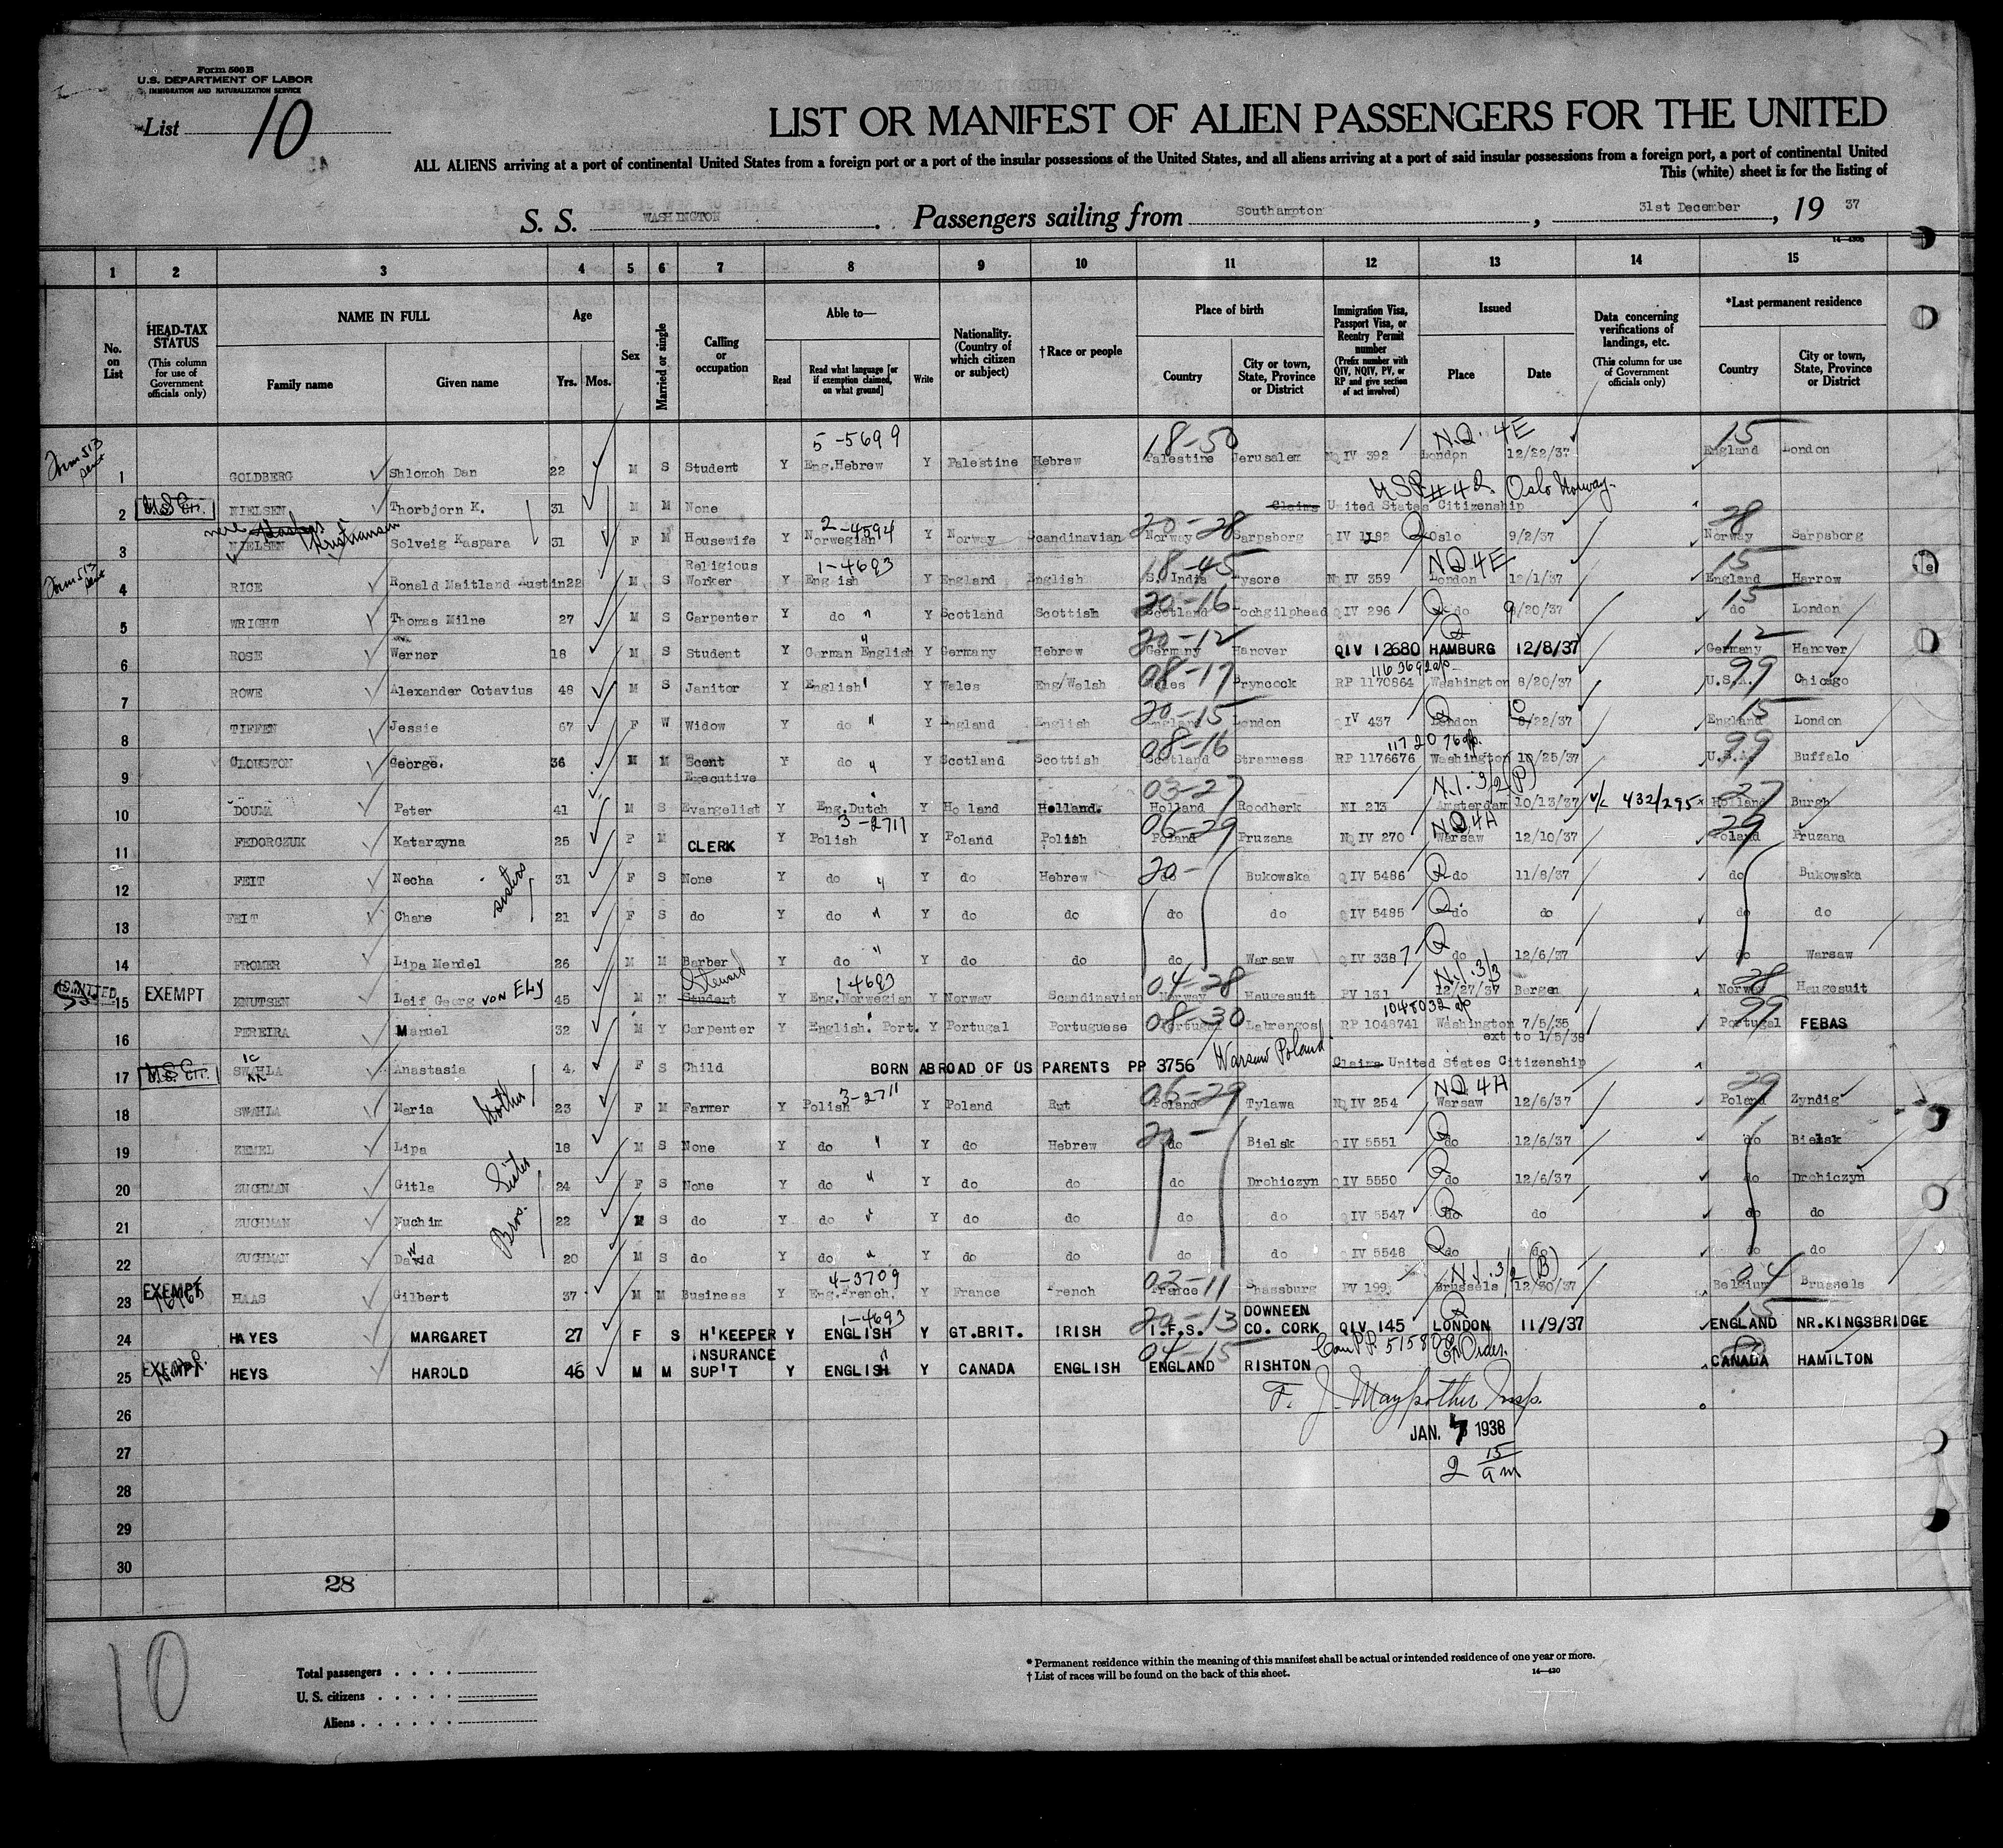 Form 500 B
U.S. DEPARTMENT OF LABOR
IMMIGRATION AND NATURALIZATION SERVICE
List 10
LIST OR MANIFEST OF ALIEN PASSENGERS FOR THE UNITED
ALL ALIENS arriving at a port of continental United States from a foreign port or a port of the insular possessions of the United States, and all aliens arriving at a port of said insular possessions from a foreign port, a port of continental United
This (white) sheet is for the listing of
S. S. WASHINGTON . Passengers sailing from Southampton , 31st December , 19 37
1 2 3 4 5 6 7 8 9 10 11 12 13 14 15
No. on List
HEAD-TAX STATUS (This column for use of Government officials only)
NAME IN FULL Family name Given name
Age Yrs. Mos.
Sex
Married or single
Calling or occupation
Able to— Read Read what language [or if exemption claimed, on what ground] Write
Nationality. (Country of which citizen or subject)
† Race or people
Place of birth Country City or town, State, Province or District
Immigration Visa, Passport Visa, or Reentry Permit number (Prefix number with QIV, NQIV, PV, or RP and give section of act involved)
Issued Place Date
Data concerning verifications of landings, etc. (This column for use of Government officials only)
*Last permanent residence Country City or town, State, Province or District
5-5699 18-50 N.Q. 4E 15
1 GOLDBERG Shlomoh Dan 22 M S Student Y Eng.Hebrew Y Palestine Hebrew Palestine Jerusalem NQ IV 392 London 12/22/37 England London
USP #42 Oslo Norway.
2 NIELSEN Thorbjorn K. 31 M M None Claims United States Citizenship
2-4594 20-28 Q 28
3 NIELSEN Kristiansen Solveig Kaspara 31 F M Housewife Y Norwegian Y Norway Scandinavian Norway Sarpsborg QIV 1182 Oslo 9/2/37 Norway Sarpsborg
1-4693 18-45 NQ 4E 15
4 RICE Ronald Maitland Austin 22 M S Religious Worker Y English Y England English S. India Mysore NQ IV 359 London 12/1/37 England Harrow
20-16 Q 15
5 WRIGHT Thomas Milne 27 M S Carpenter Y do " Y Scotland Scottish Scotland Lochgilphead QIV 296 do 9/20/37 do London
20-12 Q 12
6 ROSE Werner 18 M S Student Y German English Y Germany Hebrew Germany Hanover QIV 12680 HAMBURG 12/8/37 Germany Hanover
08-17 1163692 99
7 ROWE Alexander Octavius 48 M S Janitor Y English Y Wales Eng/Welsh Wales Bryncock RP 1170864 Washington 8/20/37 U.S.A. Chicago
20-15 Q 15
8 TIFFEN Jessie 67 F W Widow Y do " Y England English England London QIV 437 London /22/37 England London
08-16 99
9 CLOUSTON George. 36 M M Scout Executive Y do Y Scotland Scottish Scotland Stromness RP 1176676 Washington 10/25/37 U.S.A. Buffalo
03-27 N.I. 3/2 (P) 27
10 DOUMA Peter 41 M S Evangelist Y Eng.Dutch Y Holland Holland. Holland Roodherk NI 213 Amsterdam 10/13/37 v/c 432/295 Holland Burgh
3-2711 06-29 NQ 4A 29
11 FEDORCZUK Katarzyna 25 F M CLERK Y Polish Y Poland Polish Poland Pruzana NQ IV 270 Warsaw 12/10/37 Poland Pruzana
sisters 20- Q
12 FEIT Necha 31 F S None Y do Y do Hebrew do Bukowska QIV 5486 do 11/8/37 do Bukowska
13 FEIT Chane 21 F S do Y do Y do do do do QIV 5485 Q do do do do
14 FROMER Lipa Mendel 26 M M Barber Y do " Y do do do Warsaw QIV 3387 Q do 12/6/37 do Warsaw
ADMITTED Steward 1-4693 04-28 N.I. 3/3 28
15 EXEMPT KNUTSEN Leif Georg VON ELY 45 M M Student Y Eng.Norwegian Y Norway Scandinavian Norway Haugesuit PV 131 12/27/37 Bergen Norway Haugesuit
08-30 1048032 99
16 PEREIRA Manuel 32 M Y Carpenter Y English. Port. Y Portugal Portuguese Portugal Labrengos RP 1048741 Washington 7/5/35 ext to 1/5/38 Portugal FEBAS
17 SWAHLA Anastasia 4 F S Child BORN ABROAD OF US PARENTS PP 3756 Warsaw Poland Claims United States Citizenship
Mother 3-2711 06-29 NQ 4A 29
18 SWAHLA Maria 23 F M Farmer Y Polish Y Poland Rut Poland Tylawa NQ IV 254 Warsaw 12/6/37 Poland Zyndig
20- Q
19 ZEMEL Lipa 18 M S None Y do " Y do Hebrew do Bielsk QIV 5551 do 12/6/37 do Bielsk
Sister
20 ZUCHMAN Gitla 24 F S None Y do " Y do do do Drohiczyn QIV 5550 Q do 12/6/37 do Drohiczyn
Bros.
21 ZUCHMAN Nuchim 22 M S do Y do Y do do do do QIV 5547 Q do do do do
22 ZUCHMAN David 20 M S do Y do Y do do do do QIV 5548 Q do do do do
4-3709 02-11 N.I. 3/2 (B) 04
23 EXEMPT HAAS Gilbert 37 M M Business Y Eng.French. Y France French France PV 199 Brussels 12/30/37 Belgium Brussels
1-4693 20-13 Q 15
24 HAYES MARGARET 27 F S H'KEEPER Y ENGLISH Y GT.BRIT. IRISH I.F.S. DOWNEEN CO. CORK QIV 145 LONDON 11/9/37 ENGLAND NR.KINGSBRIDGE
04-15
25 EXEMPT HEYS HAROLD 46 M M INSURANCE SUP'T Y ENGLISH Y CANADA ENGLISH ENGLAND RISHTON CANADA HAMILTON
26 F. J. Maypother Insp.
27 JAN. 7 1938
28 2 15 am
29
30
28
10
Total passengers
U. S. citizens
Aliens
* Permanent residence within the meaning of this manifest shall be actual or intended residence of one year or more.
† List of races will be found on the back of this sheet. 14—430